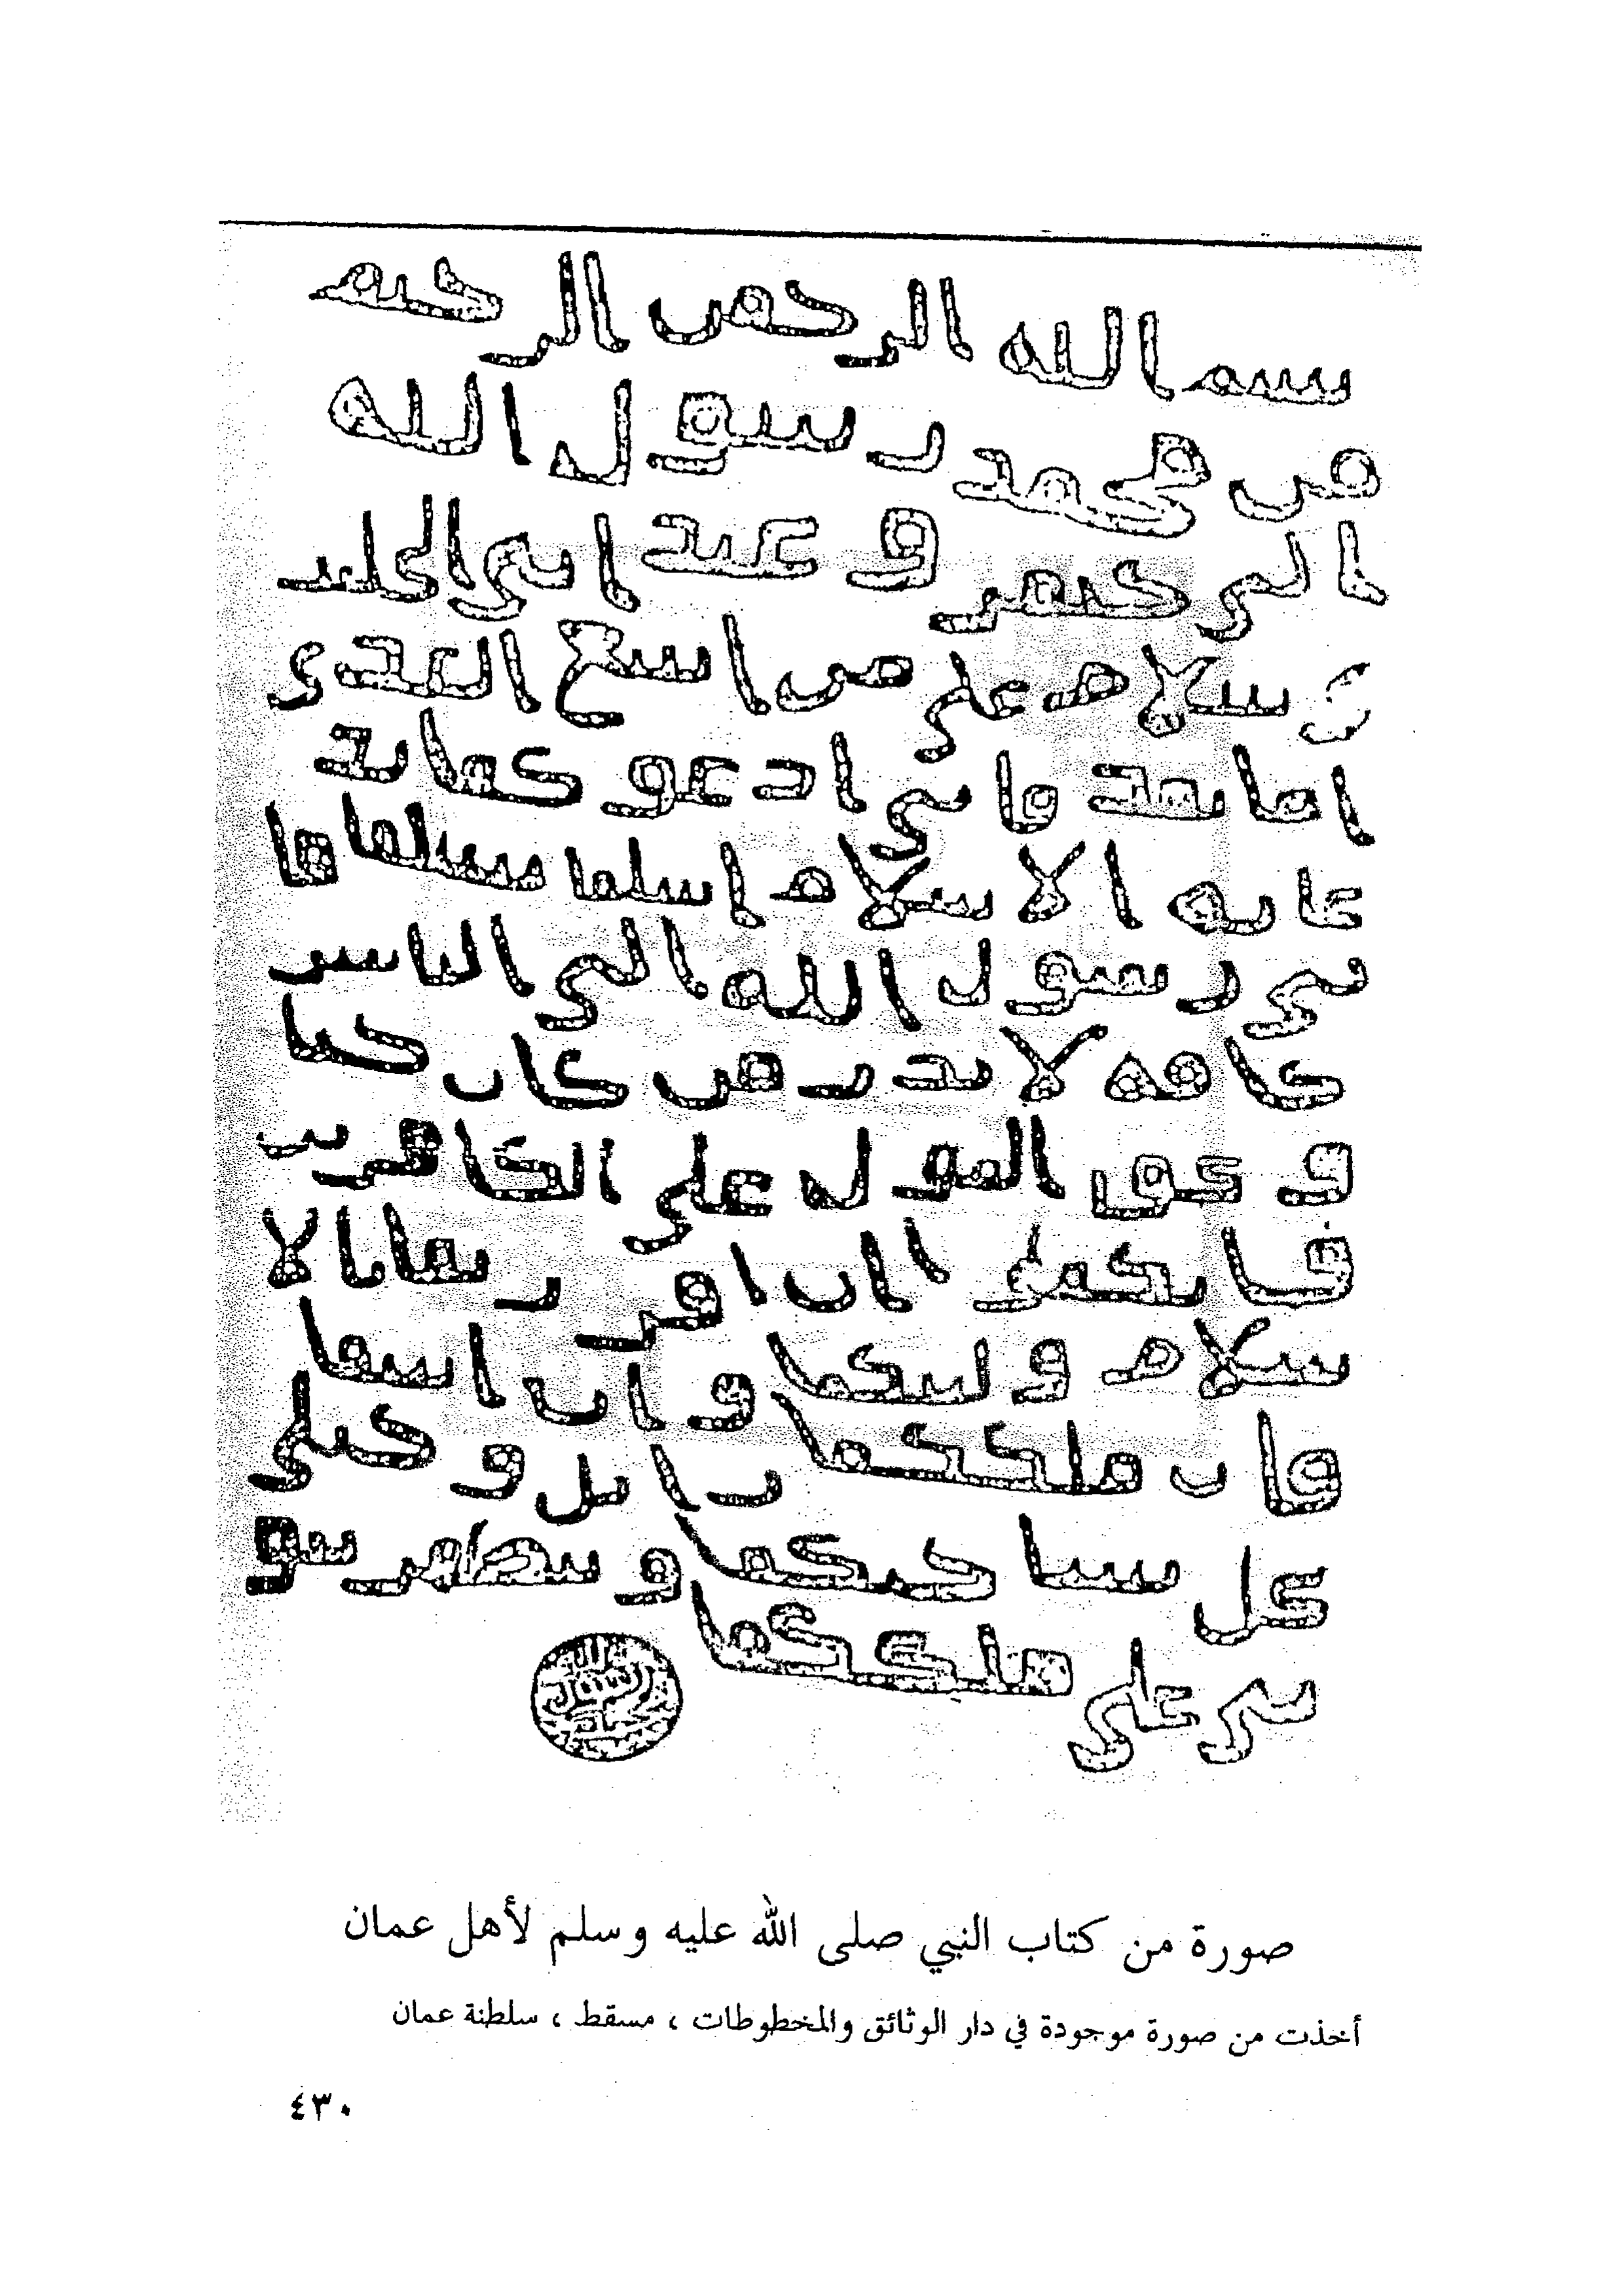 بسم الله الرحمن الرحيم
من محمد رسول الله
الى جيفر و عبد ابنى الجلند
سلام على من اتبع الهدى
اما بعد فانى ادعو كما بد
عايه الاسلام اسلما تسلما فا
نى رسول الله الى الناس
كافه لانذر من كان حيا
و يحق القول على الكافرين
فانكما ان اقر رتما بالا
سلام وليتكما وان ابيتما
فان ملككما زايل و خيلى
كل بساحتكما و تظهر نبو
تى على ملككما
صورة من كتاب النبي صلى الله عليه وسلم لأهل عمان
أخذت من صورة موجودة في دار الوثائق والمخطوطات ، مسقط ، سلطنة عمان
٤٣٠